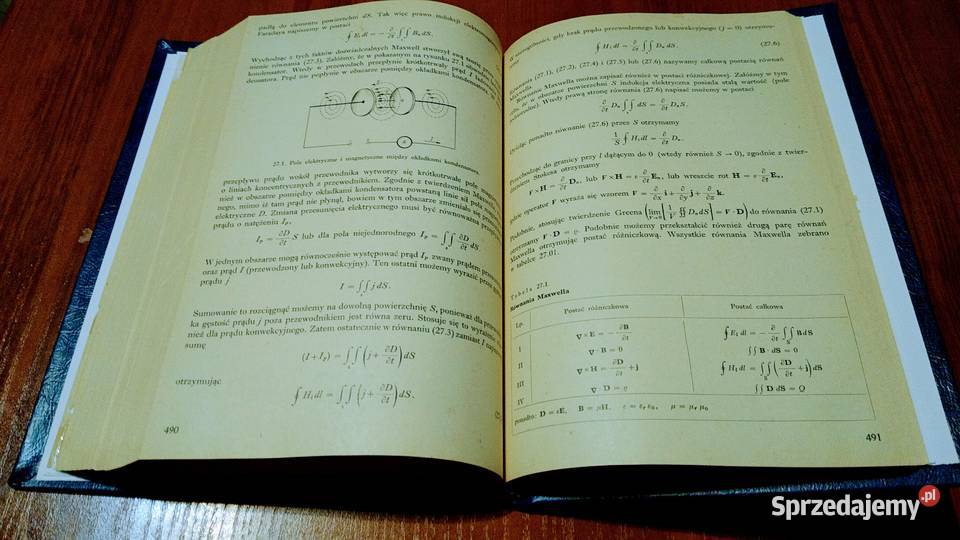 padłą do elementu powierzchni dS. Tak więc prawo indukcji elektromagnetycznej
Faradaya napiszemy w postaci
∮ Eₗ dl = − ∂/∂t ∫∫ Bₙ dS.
Wychodząc z tych faktów doświadczalnych Maxwell stworzył swą teorię
nienie równania (27.3). Załóżmy, że w pokazanym na rysunku 27.1 obwodzie
kondensator. Wtedy w przewodach przepłynie krótkotrwały prąd I ładowania
densatora. Prąd nie popłynie w obszarze pomiędzy okładkami kondensatora.
27.1. Pole elektryczne i magnetyczne między okładkami kondensatora
przepływu prądu wokół przewodnika wytworzy się krótkotrwałe pole magnetyczne
o liniach koncentrycznych z przewodnikiem. Zgodnie z twierdzeniem Maxwella
nież w obszarze pomiędzy okładkami kondensatora powstaną linie sił pola
nego, mimo iż tam prąd nie płynął, bowiem w tym obszarze zmieniała się
elektryczne D. Zmiana przesunięcia elektrycznego musi być równoważna przepływowi
prądu o natężeniu Iₚ.
Iₚ = ∂D/∂t S lub dla pola niejednorodnego Iₚ = ∫∫ ∂D/∂t dS.
W jednym obszarze mogą równocześnie występować prąd Iₚ zwany prądem
oraz prąd I (przewodzony lub konwekcyjny). Ten ostatni możemy wyrazić przez
prądu j
I = ∫∫ j dS.
Sumowanie to rozciągnąć możemy na dowolną powierzchnię S, ponieważ dla
ka gęstość prądu j poza przewodnikiem jest równa zeru. Stosuje się to
nież dla prądu konwekcyjnego. Zatem ostatecznie w równaniu (27.3) zamiast I
sumę
(I+Iₚ) = ∫∫ (j + ∂D/∂t) dS
otrzymując
∮ Hₗ dl = ∫∫ (j + ∂D/∂t) dS.
490
W szczególności, gdy brak prądu przewodzonego lub konwekcyjnego (j = 0) otrzymu-
∮ Hₗ dl = ∂/∂t ∫∫ Dₙ dS. (27.6)
Równania (27.1), (27.2), (27.4) i (27.5) lub (27.6) nazywamy całkową postacią równań
Maxwella.
Równanie Maxwella można zapisać również w postaci różniczkowej. Załóżmy w tym
celu, że w obszarze powierzchni S indukcja elektryczna posiada stałą wartość (pole
jednorodne). Wtedy prawą stronę równania (27.6) zapisać możemy w postaci
∂/∂t Dₙ ∫∫ dS = ∂/∂t DₙS.
Dzieląc ponadto równanie (27.6) przez S otrzymamy
1/S ∮ Hₗ dl = ∂/∂t Dₙ.
Przechodząc do granicy przy l dążącym do 0 (wtedy również S → 0), zgodnie z twier-
dzeniem Stokesa otrzymamy
F×H = ∂/∂t Dₙ, lub F×H = ε ∂/∂t Eₙ, lub wreszcie rot H = ε ∂/∂t Eₙ,
gdzie operator F wyraża się wzorem F = ∂/∂x i + ∂/∂y j + ∂/∂z k.
Podobnie, stosując twierdzenie Greena (lim (1/V ∯ Dₙ dS) = F · D) do równania (27.1)
otrzymamy F · D = ϱ. Podobnie możemy przekształcić również drugą parę równań
Maxwella otrzymując postać różniczkową. Wszystkie równania Maxwella zebrano
w tabelce 27.01.
Tabela 27.1
Równania Maxwella
Lp. Postać różniczkowa Postać całkowa
I ∇×E = − ∂B/∂t ∮ Eₗ dl = − ∂/∂t ∫∫ B dS
II ∇ · B = 0 ∫∫ B · dS = 0
III ∇×H = ∂D/∂t + j ∮ Hₗ dl = ∫∫ (∂D/∂t + j) dS
IV ∇ · D = ϱ ∫∫ D dS = Q
ponadto: D = εE, B = μH, ε = εᵣ ε₀, μ = μᵣ μ₀
491
Sprzedajemy.pl